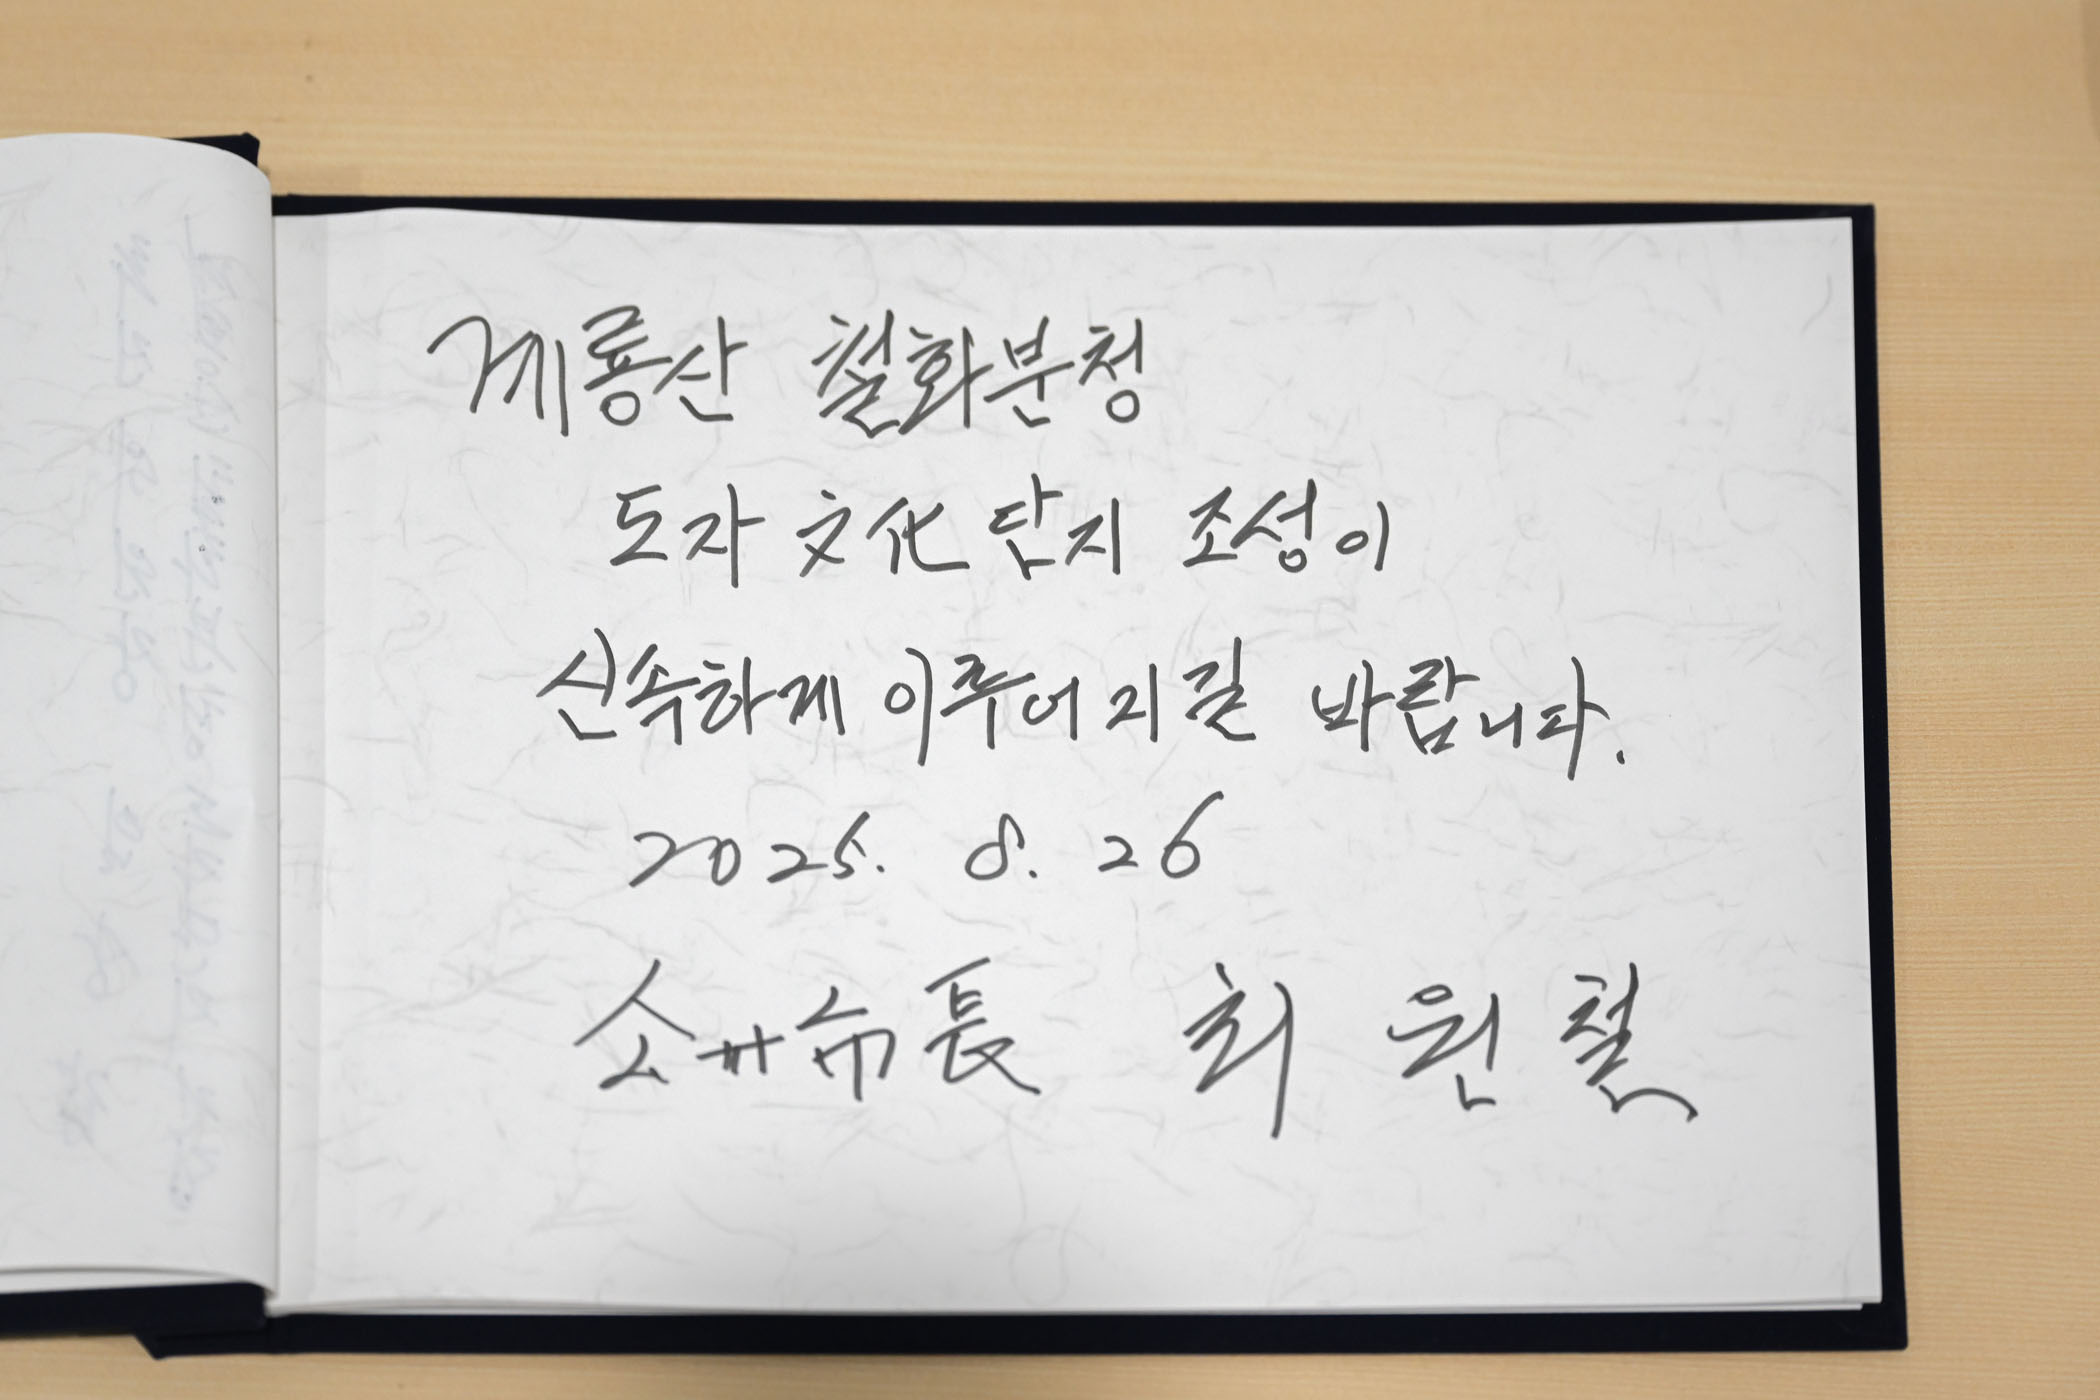 계룡산 철화분청
도자 文化 단지 조성이
신속하게 이루어지길 바랍니다.
2025. 8. 26
公州市長 최원철